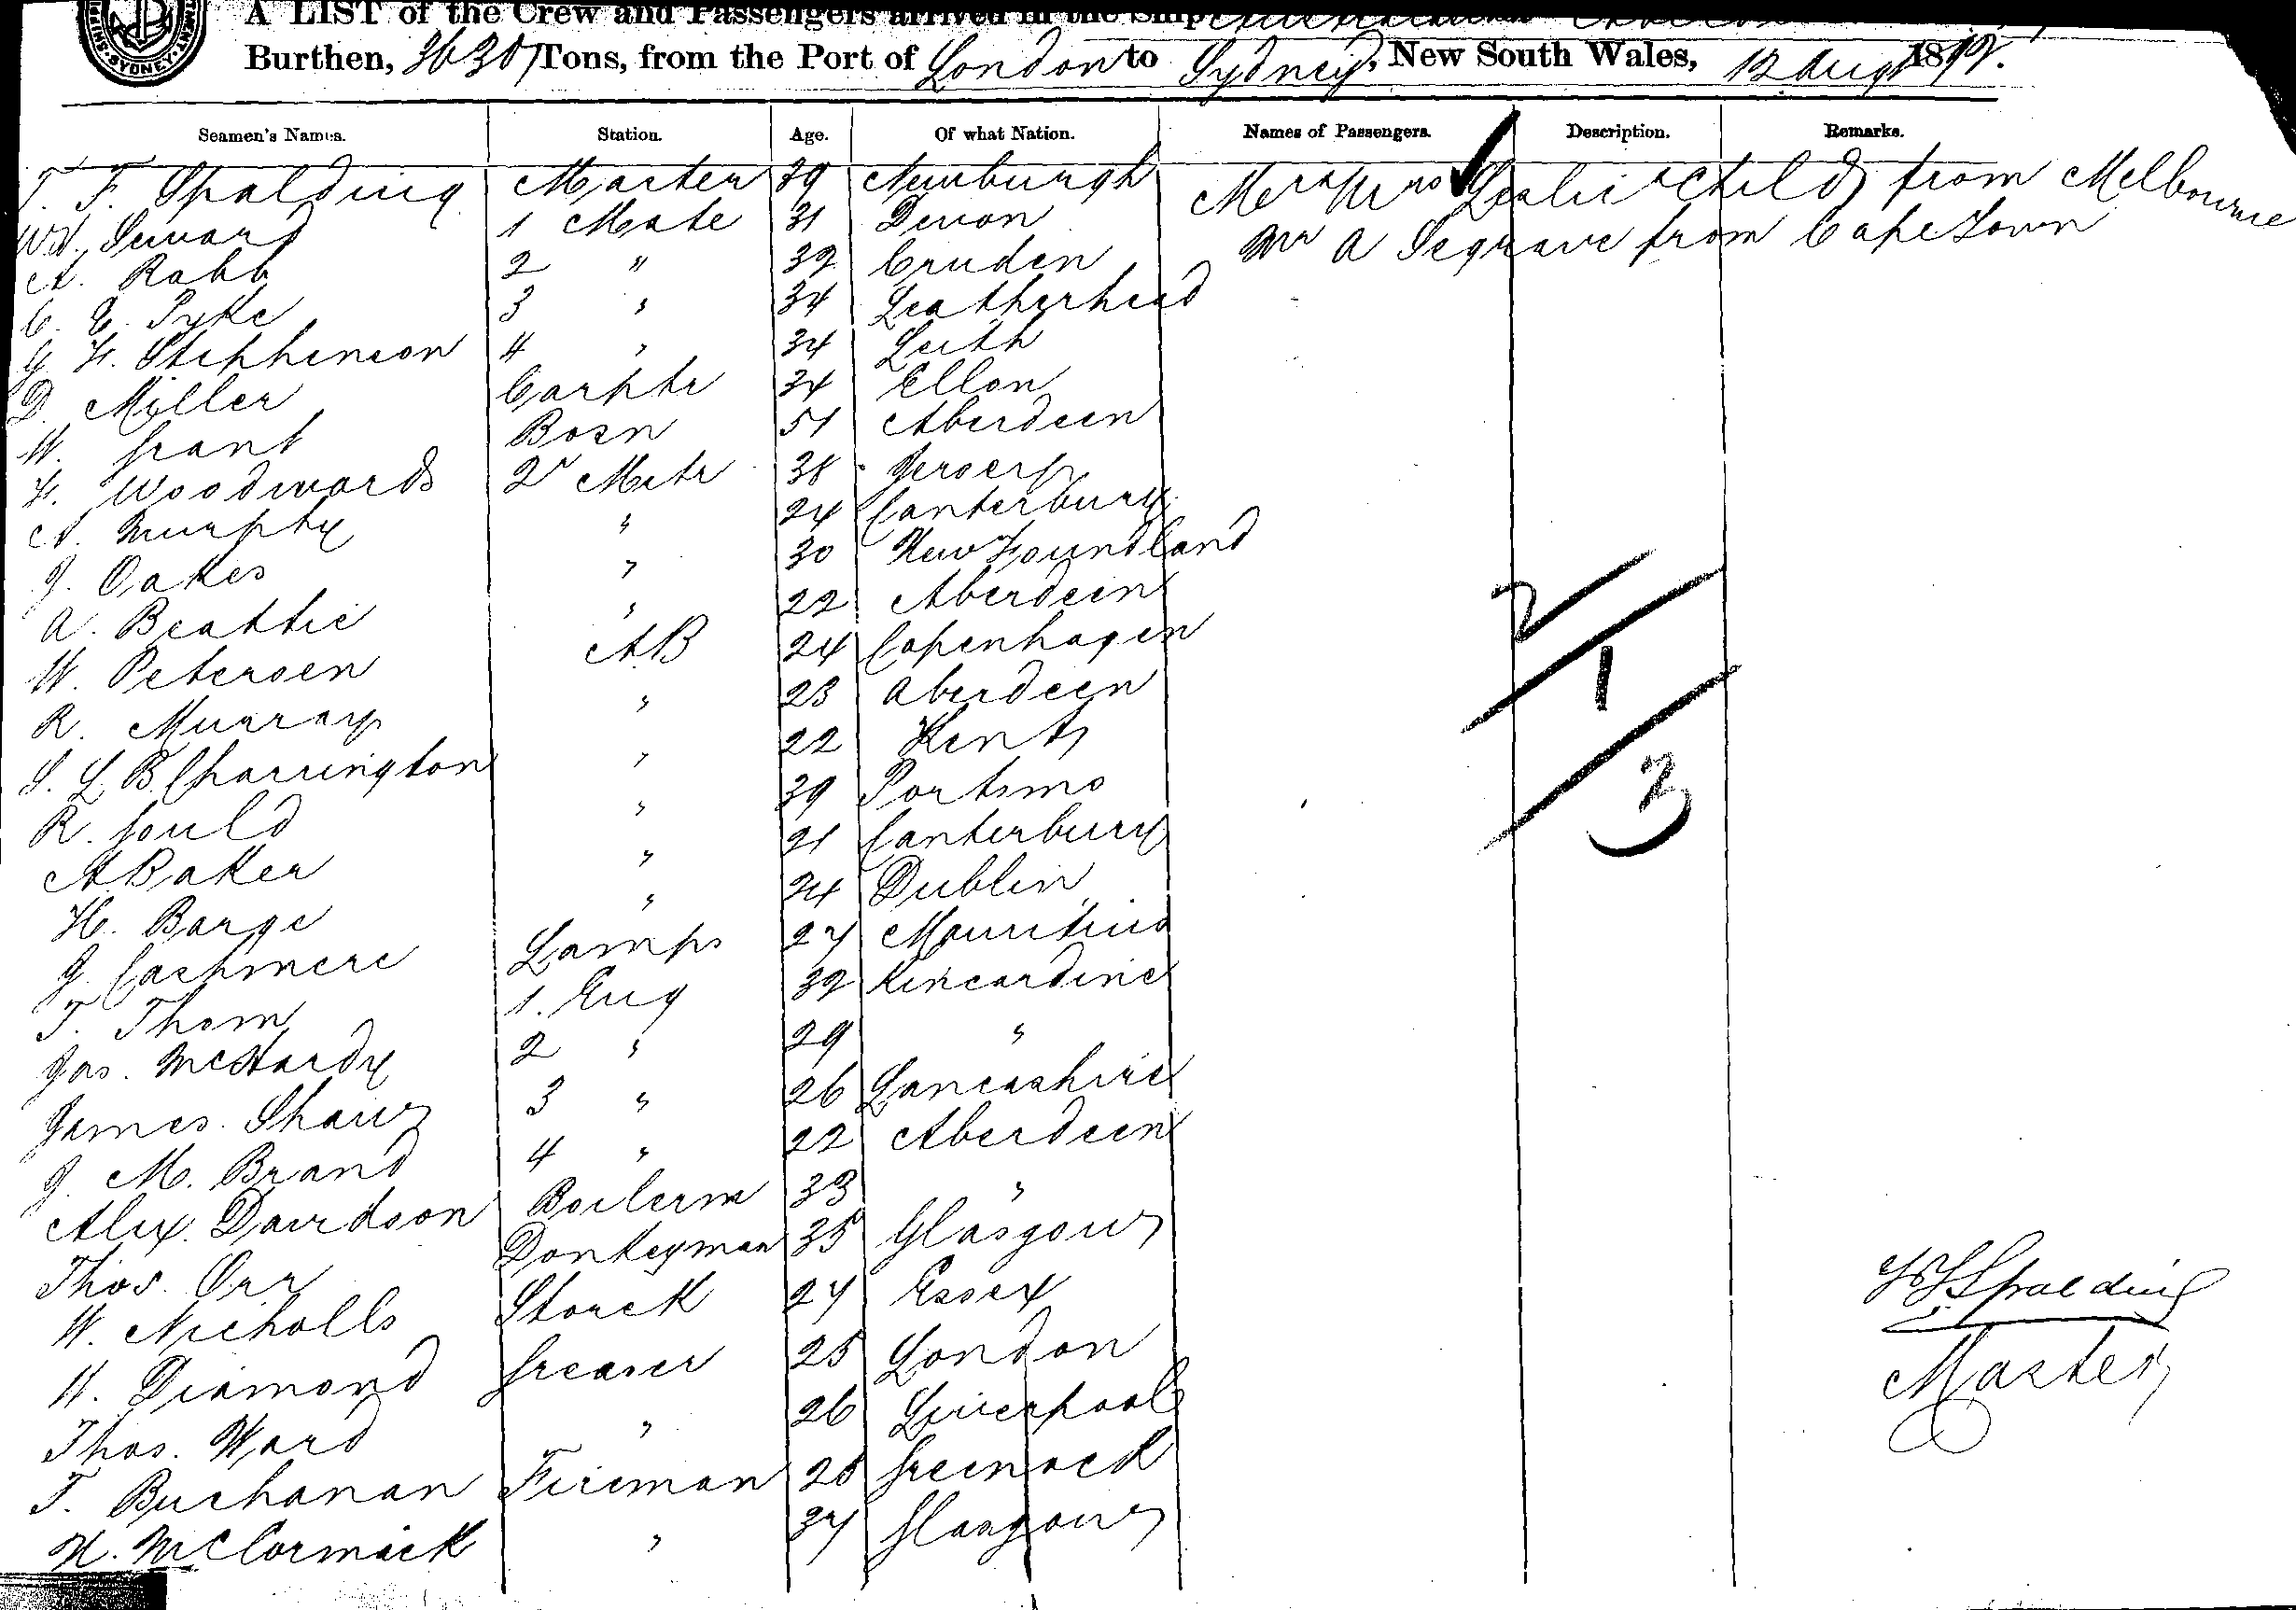 A LIST of the Crew and Passengers arrived in the Ship
Burthen, 3630 Tons, from the Port of London to Sydney, New South Wales, 12 Augt 189
Seamen's Names. Station. Age. Of what Nation. Names of Passengers. Description. Remarks.
T. F. Spalding Master 39 Newburgh Mr & Mrs Leslie & Child from Melbourne
Wm. Seward 1 Mate 31 Devon Mr A Segrave from Cape Town
A. Rabb 2 " 32 Cruden
C. E. Pyke 3 " 34 Leatherhead
G. F. Stephenson 4 " 34 Leith
D. Miller Carptr 34 Ellon
W. Grant Bosn 51 Aberdeen
F. Woodwards 2r Mstr 38 Jersey
A. Murphy " 24 Canterbury
J. Oakes " 30 New Foundland
A. Beattie " 22 Aberdeen
W. Petersen AB 24 Copenhagen
R. Murray " 23 Aberdeen
S. L. B. Charrington " 22 Kent
R. Gould " 39 Portsmo
A Baker " 21 Canterbury
H. Barge " 24 Dublin
J. Cashmere Lamps 27 Mauritius
T. Thom 1. Eng 32 Kincardine
Jas. McHardy 2 " 29 "
James. Shaw 3 " 26 Lancashire
J. M. Brand 4 " 22 Aberdeen
Alex. Davidson Boilerm 33 "
Thos. Orr Donkeyman 35 Glasgow
W. Nicholls Storek 27 Essex
W. Diamond Greaser 25 London
Thos. Ward " 26 Liverpool
T. Buchanan Fireman 28 Greenock
H. McCormack " 37 Glasgow
2
1
3
Spalding
Master